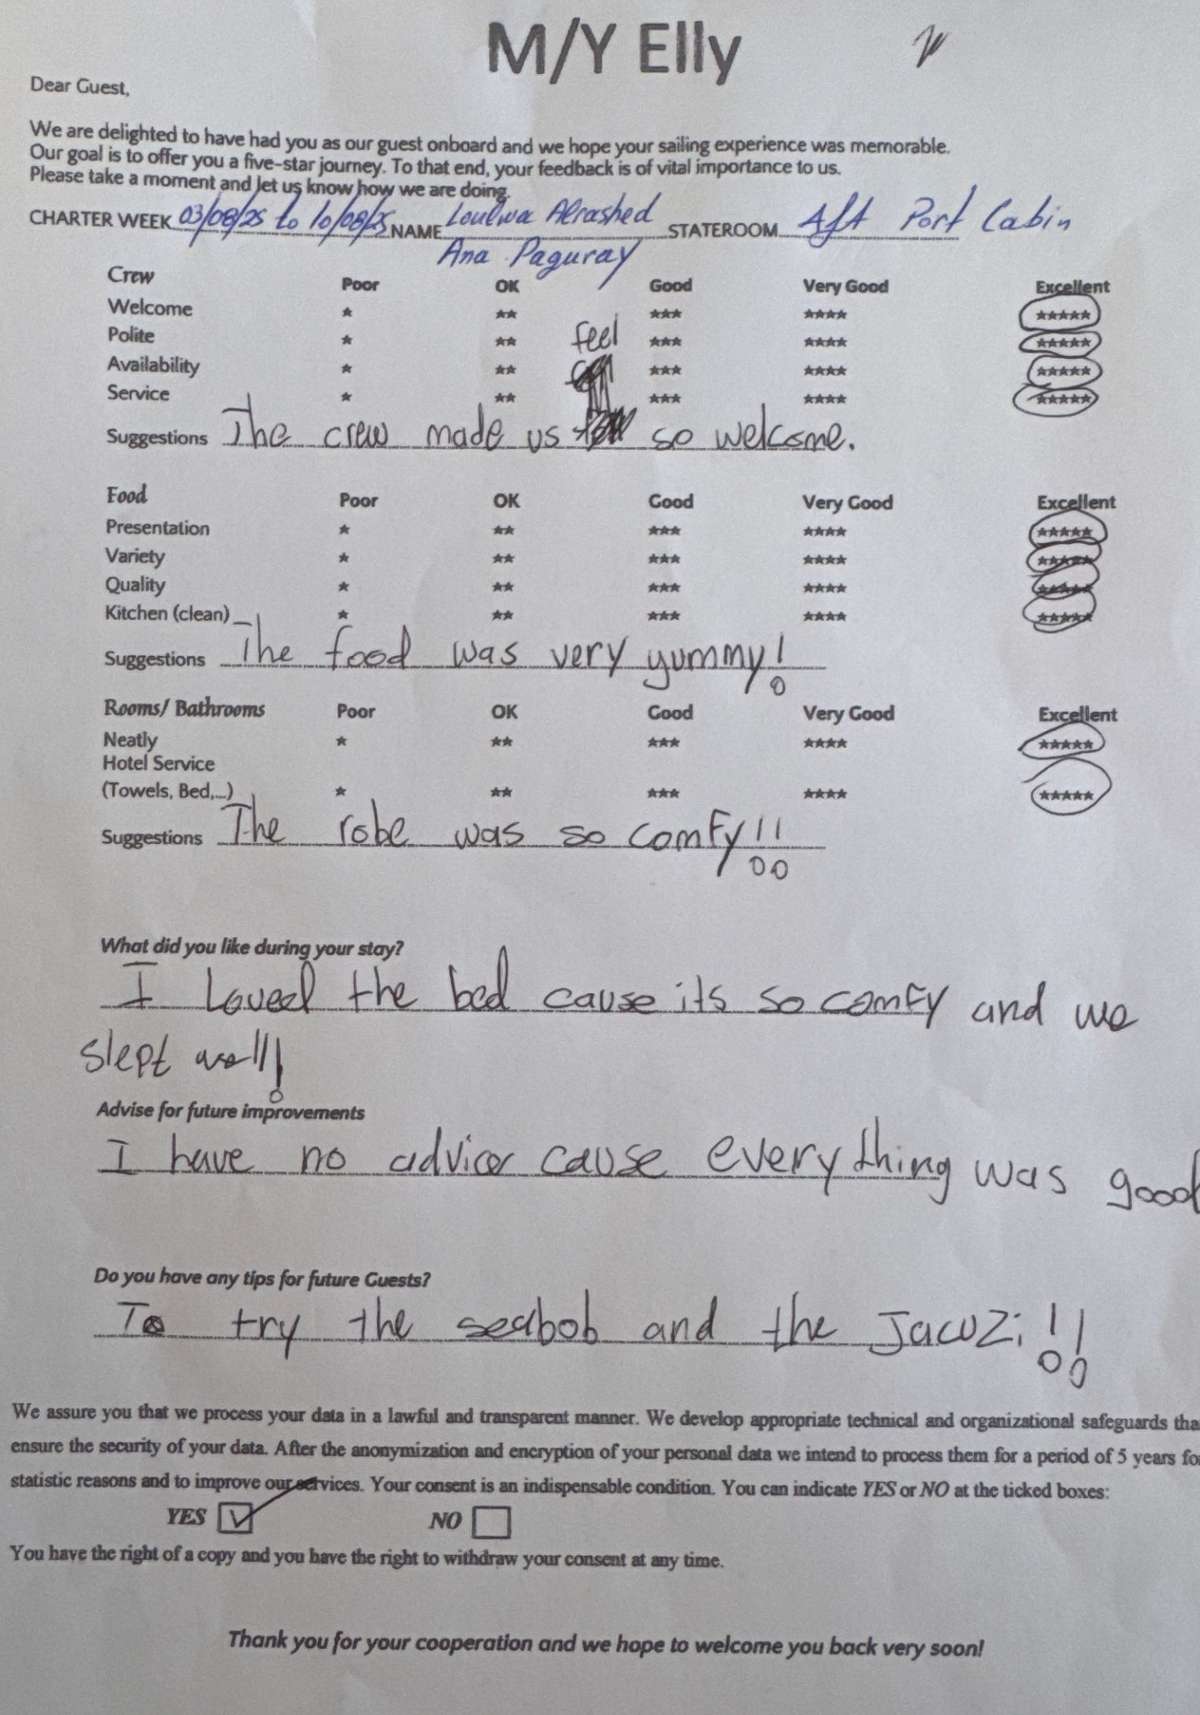 M/Y Elly
Dear Guest,
We are delighted to have had you as our guest onboard and we hope your sailing experience was memorable.
Our goal is to offer you a five-star journey. To that end, your feedback is of vital importance to us.
Please take a moment and let us know how we are doing.
CHARTER WEEK 03/08/25 to 10/08/25 NAME Loulwa Alrashed STATEROOM Aft Port Cabin
Ana Paguray
Crew Poor OK Good Very Good Excellent
Welcome ★ ★★ ★★★ ★★★★ ★★★★★
Polite ★ ★★ ★★★ ★★★★ ★★★★★
Availability ★ ★★ ★★★ ★★★★ ★★★★★
Service ★ ★★ ★★★ ★★★★ ★★★★★
Suggestions The crew made us feel so welcome.
Food Poor OK Good Very Good Excellent
Presentation ★ ★★ ★★★ ★★★★ ★★★★★
Variety ★ ★★ ★★★ ★★★★ ★★★★★
Quality ★ ★★ ★★★ ★★★★ ★★★★★
Kitchen (clean) ★ ★★ ★★★ ★★★★ ★★★★★
Suggestions The food was very yummy!
Rooms/ Bathrooms Poor OK Good Very Good Excellent
Neatly ★ ★★ ★★★ ★★★★ ★★★★★
Hotel Service
(Towels, Bed,...) ★ ★★ ★★★ ★★★★ ★★★★★
Suggestions The robe was so comfy!!
What did you like during your stay?
I Loved the bed cause its so comfy and we
slept well!
Advise for future improvements
I have no advice cause everything was good
Do you have any tips for future Guests?
To try the seabob and the Jacuzi!!
We assure you that we process your data in a lawful and transparent manner. We develop appropriate technical and organizational safeguards tha
ensure the security of your data. After the anonymization and encryption of your personal data we intend to process them for a period of 5 years fo
statistic reasons and to improve our services. Your consent is an indispensable condition. You can indicate YES or NO at the ticked boxes:
YES NO
You have the right of a copy and you have the right to withdraw your consent at any time.
Thank you for your cooperation and we hope to welcome you back very soon!